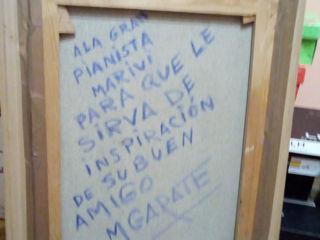 ALA GRAN
PIANISTA
MARIVI
PARA QUE LE
SIRVA DE
INSPIRACIÓN
DE SU BUEN
AMIGO
MGARATE